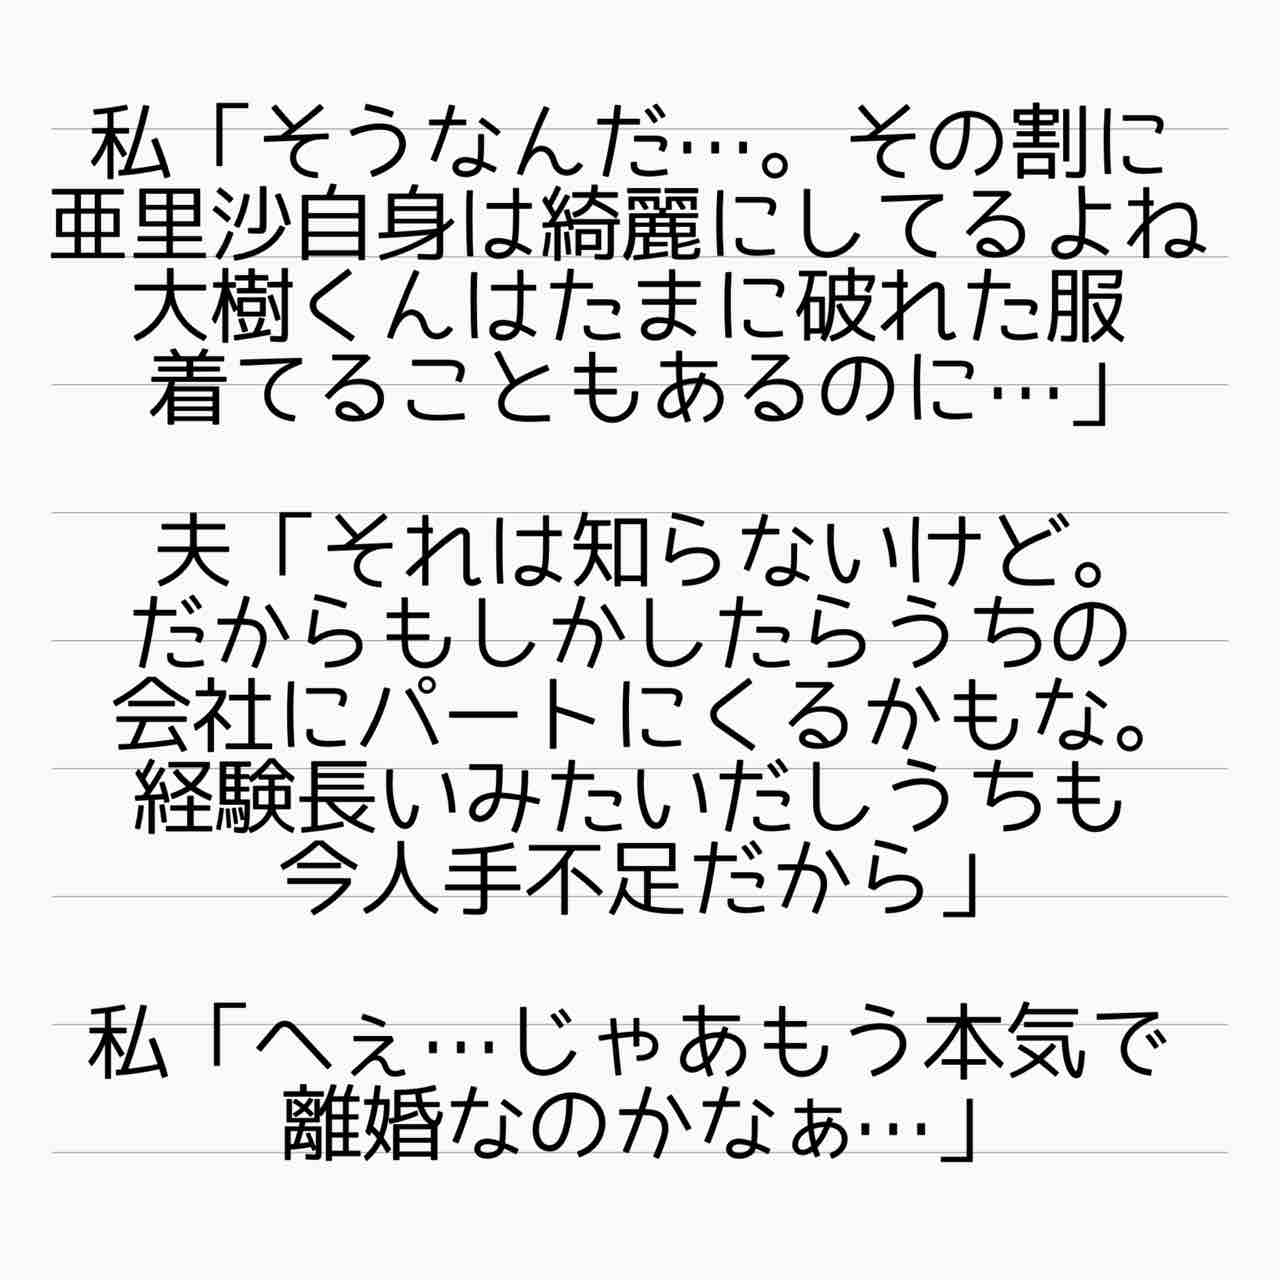 私「そうなんだ…。その割に
亜里沙自身は綺麗にしてるよね
大樹くんはたまに破れた服
着てることもあるのに…」
夫「それは知らないけど。
だからもしかしたらうちの
会社にパートにくるかもな。
経験長いみたいだしうちも
今人手不足だから」
私「へぇ…じゃあもう本気で
離婚なのかなぁ…」